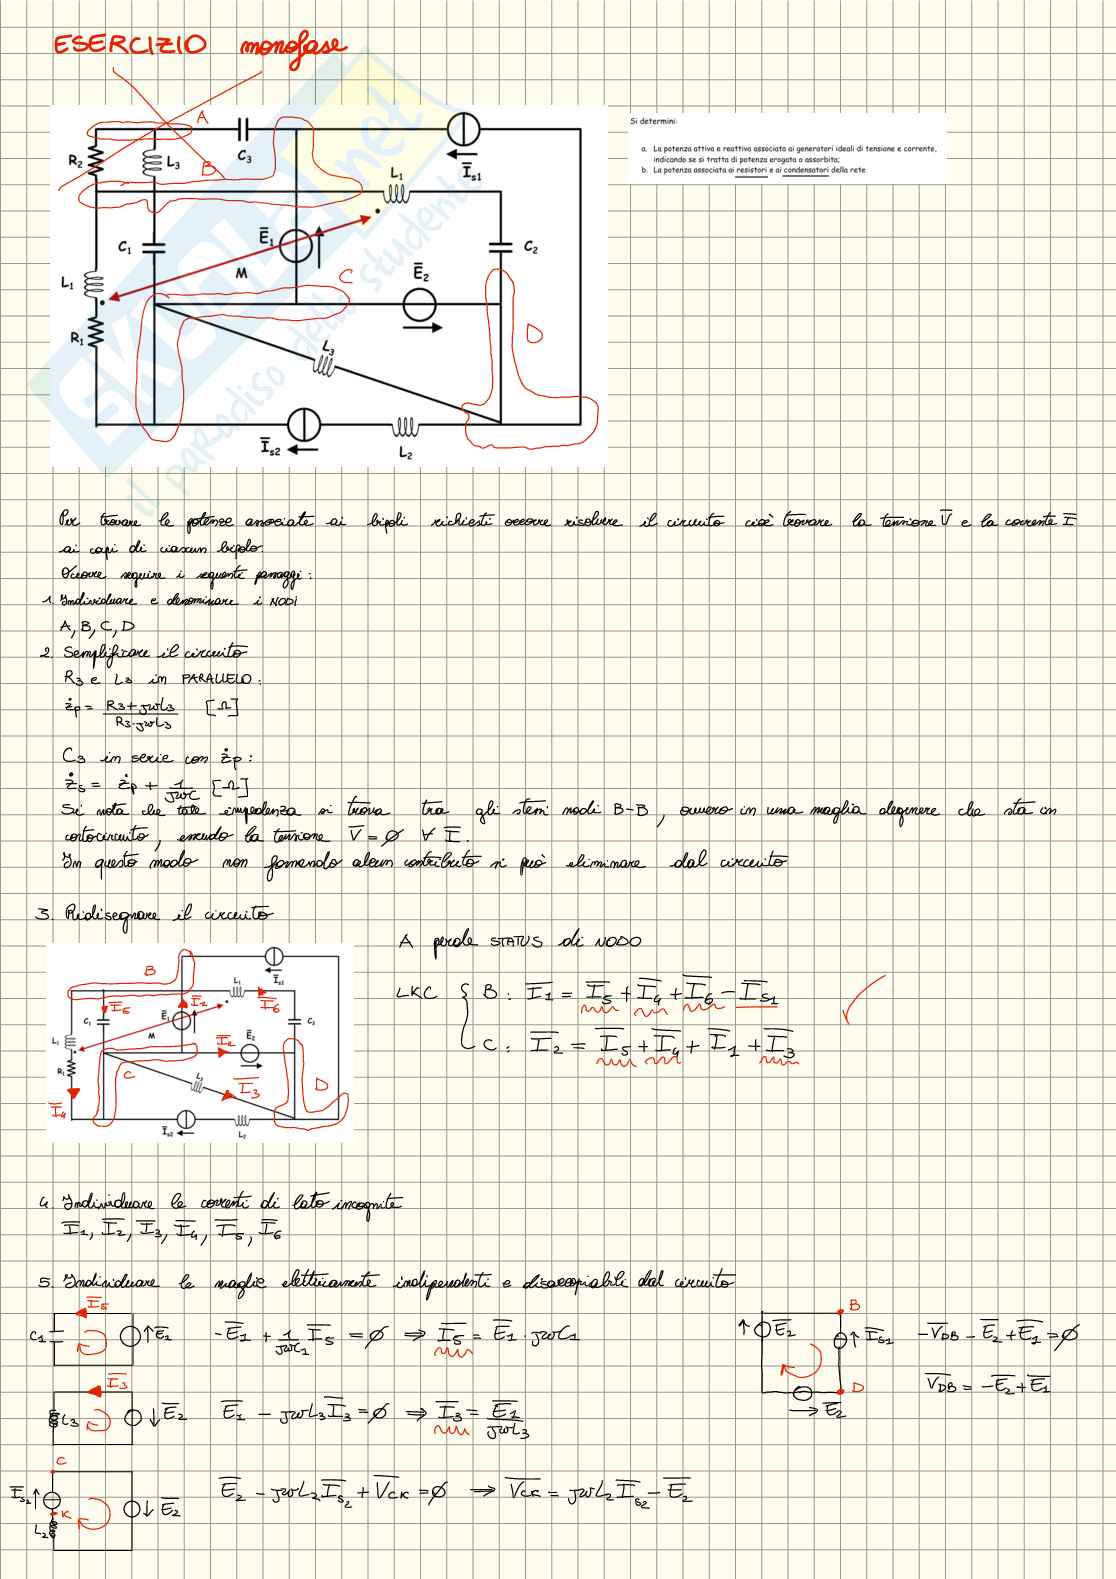 ESERCIZIO monofase
A
R2
L3
C3
B
Īs1
L1
C1
Ē1
M
C
Ē2
C2
L1
R1
D
L3
Īs2
L2
Si determini:
a. La potenza attiva e reattiva associata ai generatori ideali di tensione e corrente,
indicando se si tratta di potenza erogata o assorbita;
b. La potenza associata ai resistori e ai condensatori della rete
SKUOLA.net
il paradiso dello studente
Per trovare le potenze associate ai bipoli richiesti occorre risolvere il circuito cioè trovare la tensione V̄ e la corrente Ī
ai capi di ciascun bipolo.
Occorre seguire i seguenti passaggi:
1. Individuare e denominare i NODI
A, B, C, D
2. Semplificare il circuito
R3 e L3 in PARALLELO:
żp = R3+jωL3 / R3·jωL3 [Ω]
C3 in serie con żp:
żs = żp + 1/jωC [Ω]
Si nota che tale impedenza si trova tra gli stessi nodi B-B, ovvero in una maglia degenere che sta in
cortocircuito, essendo la tensione V̄ = ∅ ∀ Ī.
In questo modo non fornendo alcun contributo si può eliminare dal circuito
3. Ridisegnare il circuito
A perde STATUS di NODO
LKC { B: Ī1 = Ī5 + Ī4 + Ī6 - Īs1
C: Ī2 = Ī5 + Ī4 + Ī1 + Ī3
B
Īs1
L1
Ī5
Ī1
Ī6
C1
Ē1
C2
L1
M
Ī2
Ē2
R1
C
L3
Ī3
D
Ī4
Īs2
L2
4. Individuare le correnti di lato incognite
Ī1, Ī2, Ī3, Ī4, Ī5, Ī6
5. Individuare le maglie elettricamente indipendenti e disaccopiabili dal circuito
Ī5
C1
↑Ē1
-Ē1 + 1/jωC1 Ī5 = ∅ ⇒ Ī5 = Ē1 · jωC1
B
↑Ē2
↑Īs1
D
→Ē2
-V̄DB - Ē2 + Ē1 = ∅
V̄DB = -Ē2 + Ē1
Ī3
L3
↓Ē2
Ē1 - jωL3 Ī3 = ∅ ⇒ Ī3 = Ē1/jωL3
C
Īs2↑
K
L2
↓Ē2
Ē2 - jωL2 Īs2 + V̄CK = ∅ ⇒ V̄CK = jωL2 Īs2 - Ē2